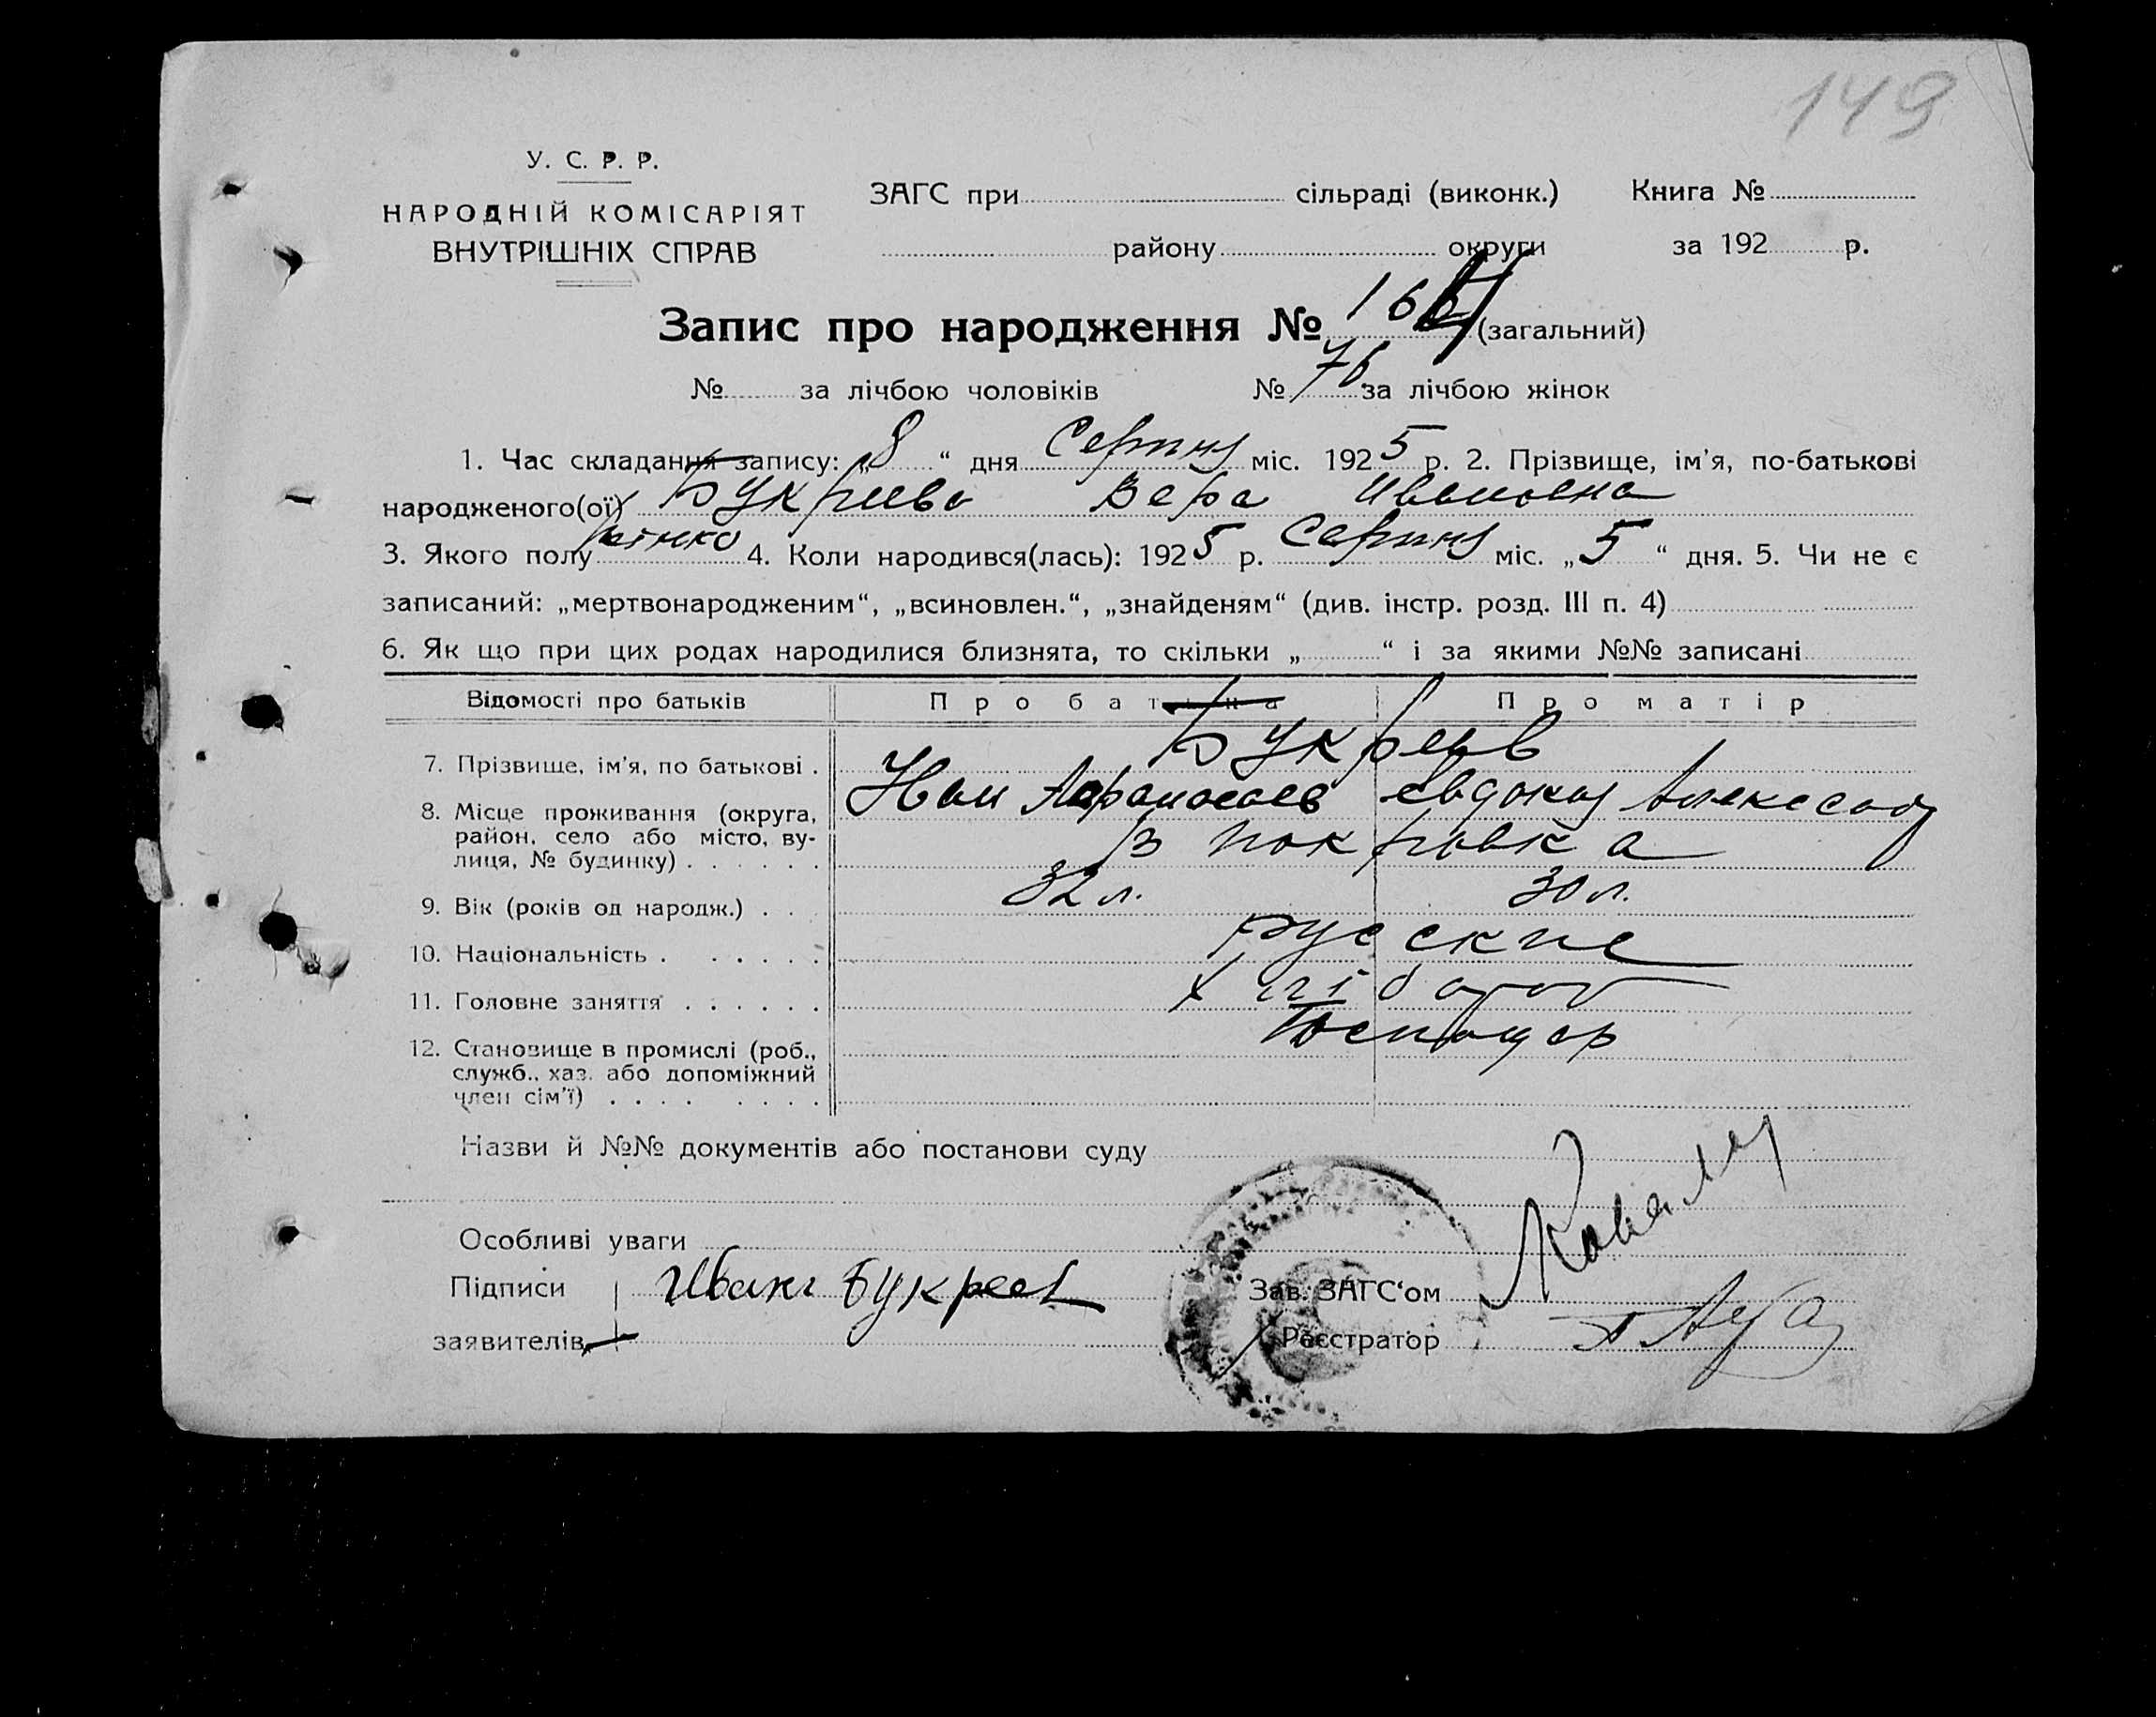 149
У. С. Р. Р.
НАРОДНІЙ КОМІСАРІЯТ
ВНУТРІШНІХ СПРАВ
ЗАГС при сільраді (виконк.) Книга №
району округи за 192 р.
Запис про народження № 164 (загальний)
№ за лічбою чоловіків № 76 за лічбою жінок
1. Час складання запису: „8“ дня Серпня міс. 1925 р. 2. Прізвище, ім’я, по-батькові
народженого(ої) Букриева Вера Ивановна
3. Якого полу жінко 4. Коли народився(лась): 1925 р. Серпня міс. „5“ дня. 5. Чи не є
записаний: „мертвонародженим“, „всиновлен.“, „знайденям“ (див. інстр. розд. III п. 4)
6. Як що при цих родах народилися близнята, то скільки „ “ і за якими №№ записані
Відомості про батьків Про батька Про матір
Букреев
7. Прізвище, ім’я, по батькові .
Иван Афанасаев Евдокия
8. Місце проживання (округа,
район, село або місто, ву-
лиця, № будинку) . . . . . .
В Покровка
9. Вік (років од народж.) . . . 32 л. 30 л.
10. Національність . . . . . . русские
11. Головне заняття . . . . . . Хлібороб
12. Становище в промислі (роб.,
служб., хаз. або допоміжний
член сім’ї) . . . . . . . .
Господар
Назви й №№ документів або постанови суду
Особливі уваги
Підписи Иванъ Букреев Зав. ЗАГС‘ом
заявителів Реєстратор